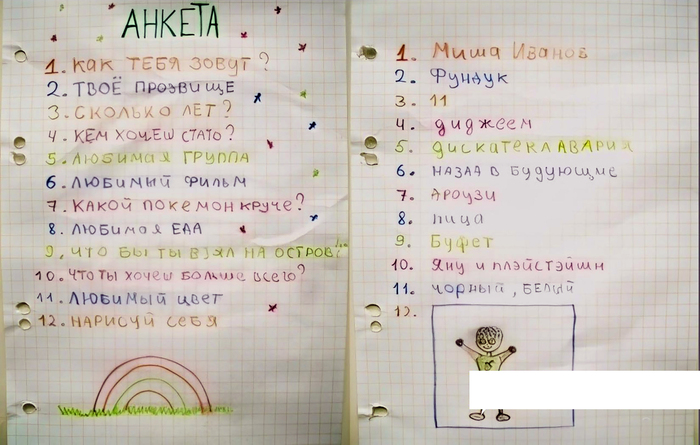 АНКЕТА
1. КАК ТЕБЯ ЗОВУТ?
2. ТВОЁ ПРОЗВИЩЕ
3. СКОЛЬКО ЛЕТ?
4. КЕМ ХОЧЕШ СТАТО?
5. ЛЮБИМАЯ ГРУППА
6. ЛЮБИМЫЙ ФИЛЬМ
7. КАКОЙ ПОКЕМОН КРУЧЕ?
8. ЛЮБИМАЯ ЕДА
9. ЧТО БЫ ТЫ ВЗЯЛ НА ОСТРОВ?
10. ЧТО ТЫ ХОЧЕШ БОЛЬШЕ ВСЕГО?
11. ЛЮБИМЫЙ ЦВЕТ
12. НАРИСУЙ СЕБЯ
1. Миша Иванов
2. Фундук
3. 11
4. диджеем
5. ДИСКАТЕКЛАВАРИЯ
6. НАЗАД В БУДУЮЩИЕ
7. АРОУЗИ
8. пица
9. Буфет
10. Яну и плэйстэйшн
11. ЧОРНЫЙ, БЕЛЫЙ
12.